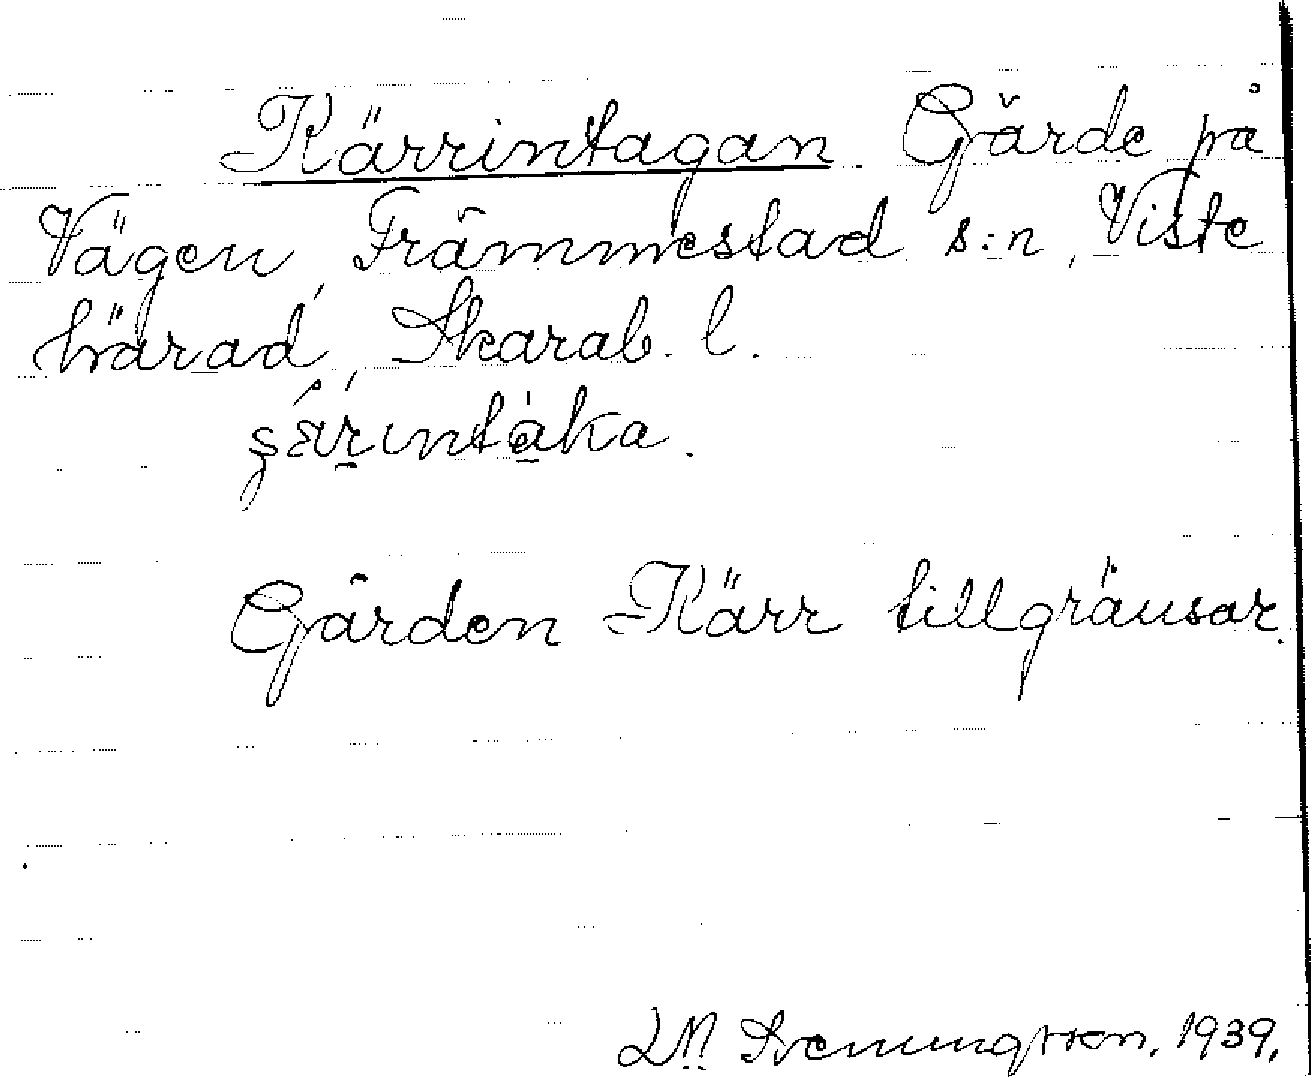 Kärrintagan. Gärde på
Vägen, Främmestad s:n, Viste
härad, Skarab. l.
Gården Kärr tillgränsar.
1939.